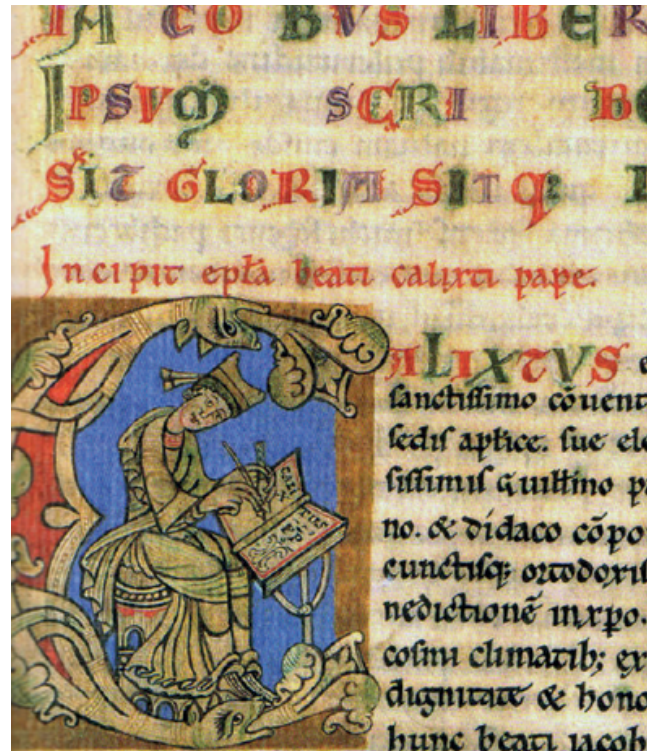 IACOBUS LIBER
IPSVM SCRI BE
SIT GLORIA SITQ:
Incipit ep̄la beati calixti pape.
CALIXTVS e
sanctissimo cōuent
sedis aplice. sue ele
sissimis Guillmo pa
no. & didaco cōpo
cunctisq; ortodoxis
nedictionē in xpo.
cosmi climatib; ex
dignitate & hono
hunc beati iacob